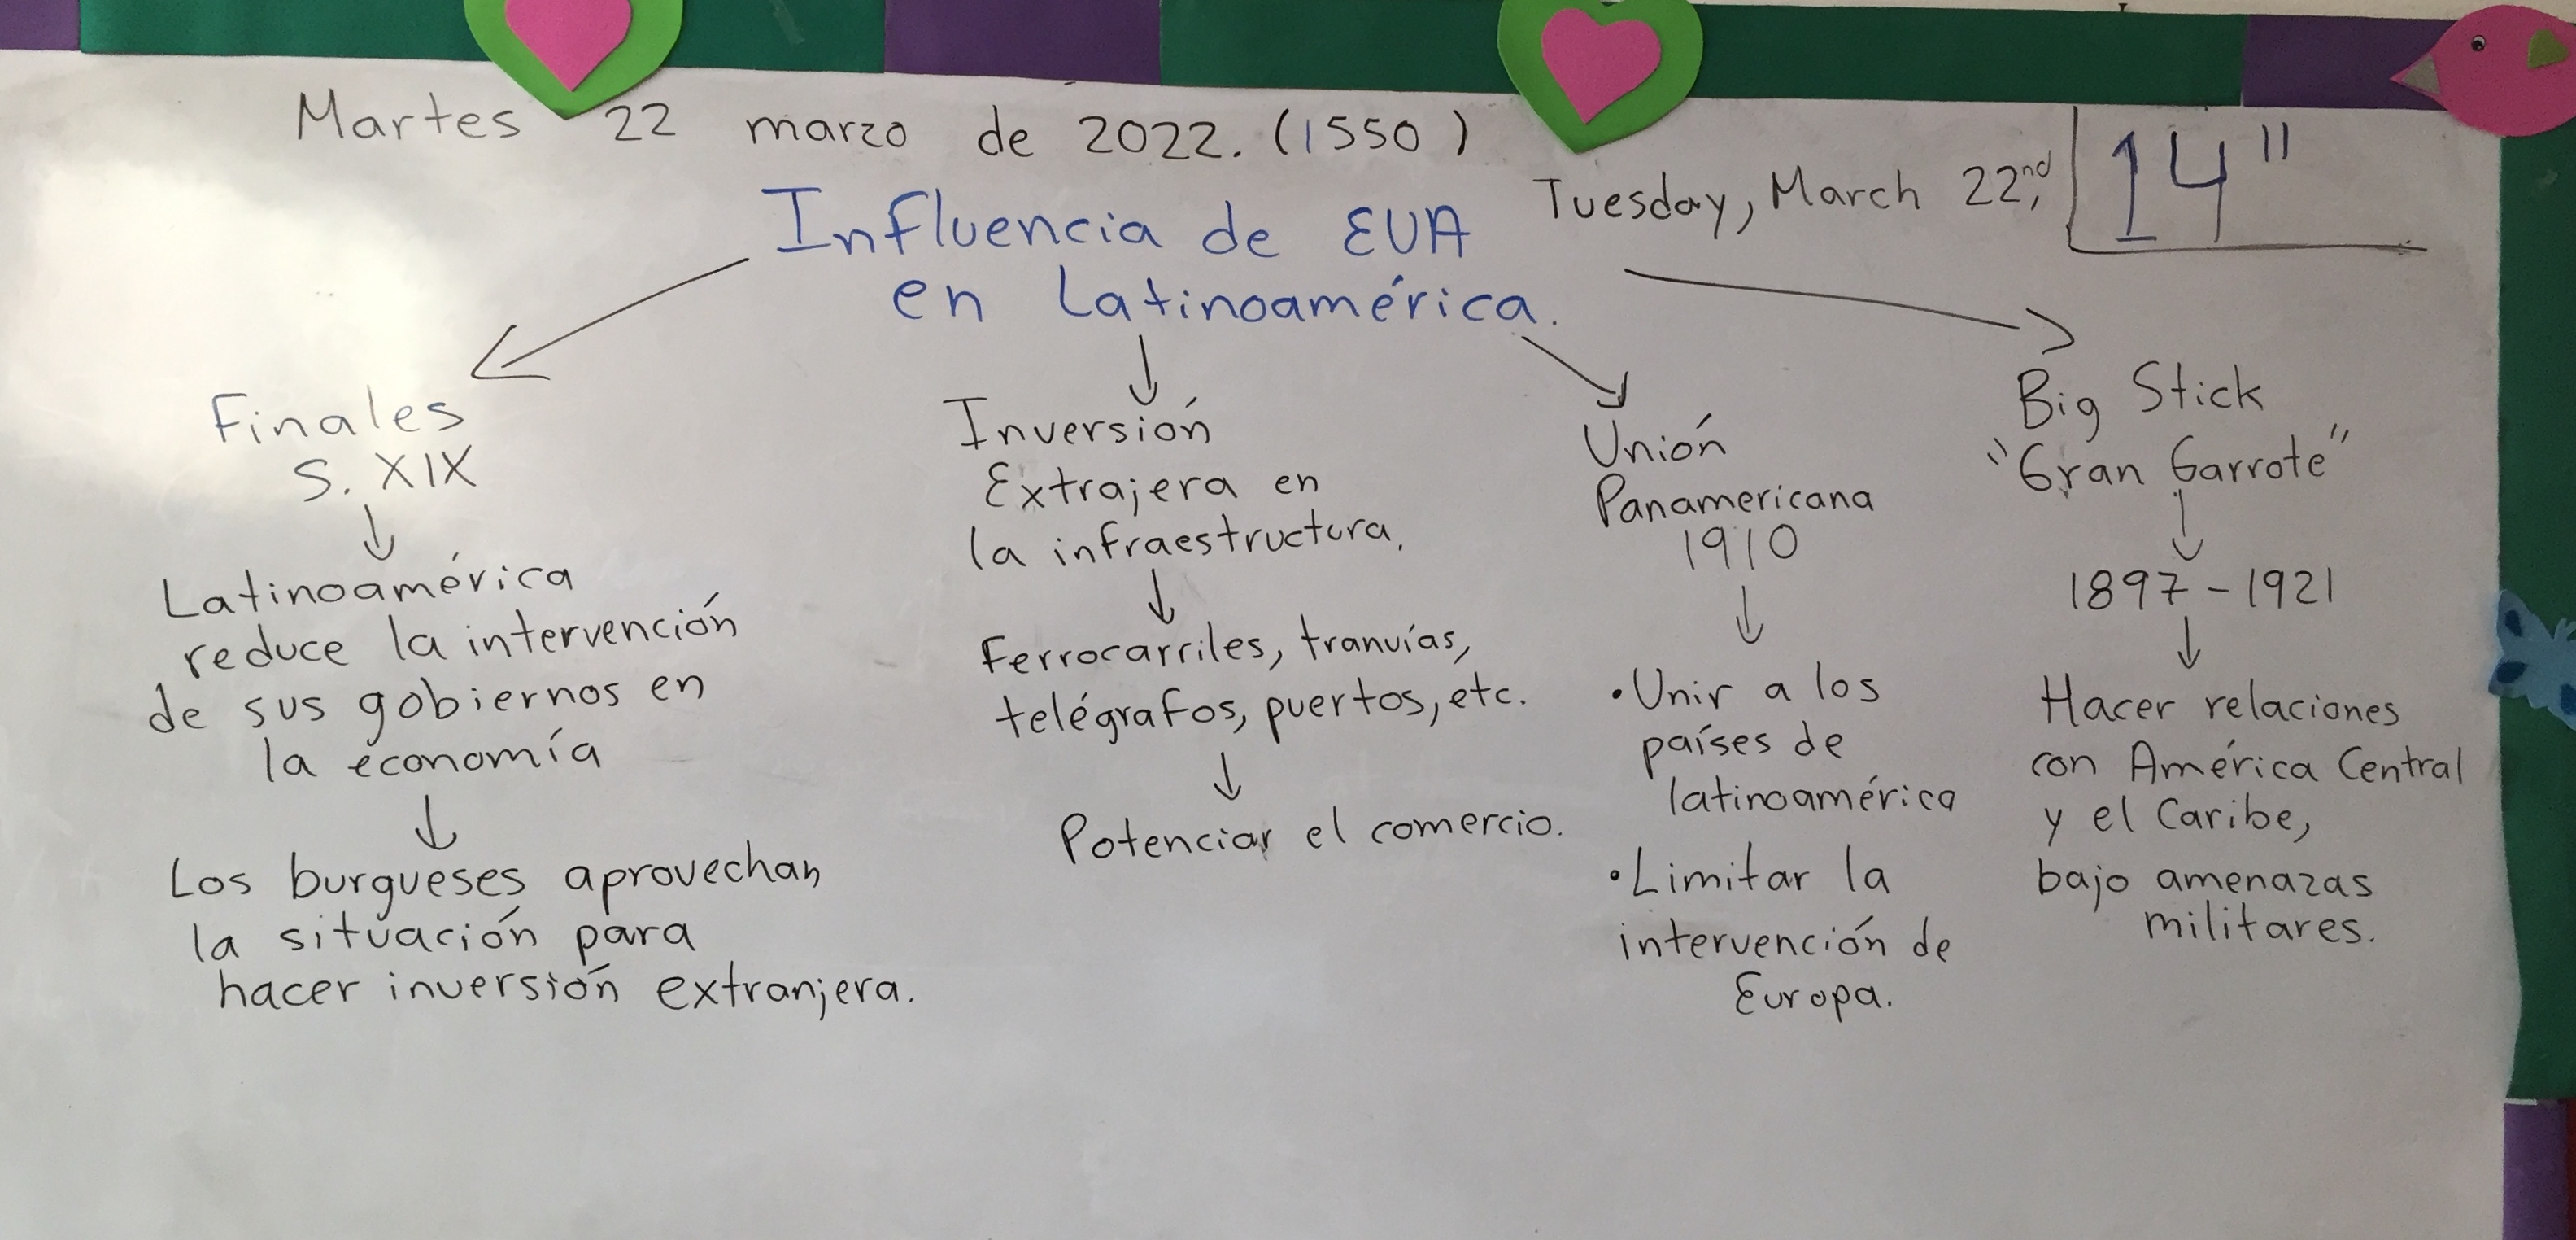 Martes 22 marzo de 2022. (1550)
Tuesday, March 22nd,
14"
Influencia de EUA
en Latinoamérica.
Finales
S. XIX
Latinoamérica
reduce la intervención
de sus gobiernos en
la economía
Los burgueses aprovechan
la situación para
hacer inversión extranjera.
Inversión
Extrajera en
la infraestructura.
Ferrocarriles, tranvías,
telégrafos, puertos, etc.
Potenciar el comercio.
Unión
Panamericana
1910
• Unir a los
países de
latinoamérica
• Limitar la
intervención de
Europa.
Big Stick
"Gran Garrote"
1897-1921
Hacer relaciones
con América Central
y el Caribe,
bajo amenazas
militares.